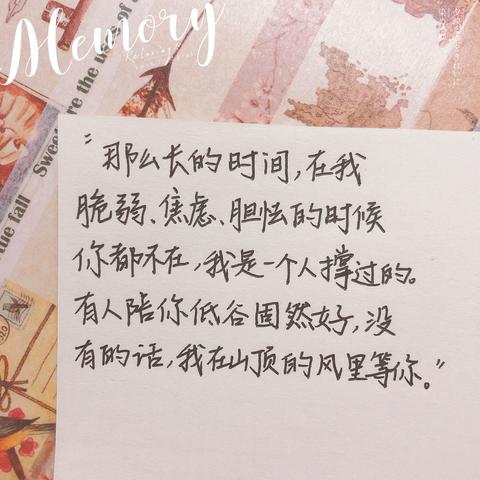 Memory
Sweet are the use of
true fall
"那么长的时间,在我
脆弱、焦虑、胆怯的时候
你都不在,我是一个人撑过的。
有人陪你低谷固然好,没
有的话,我在山顶的风里等你。"